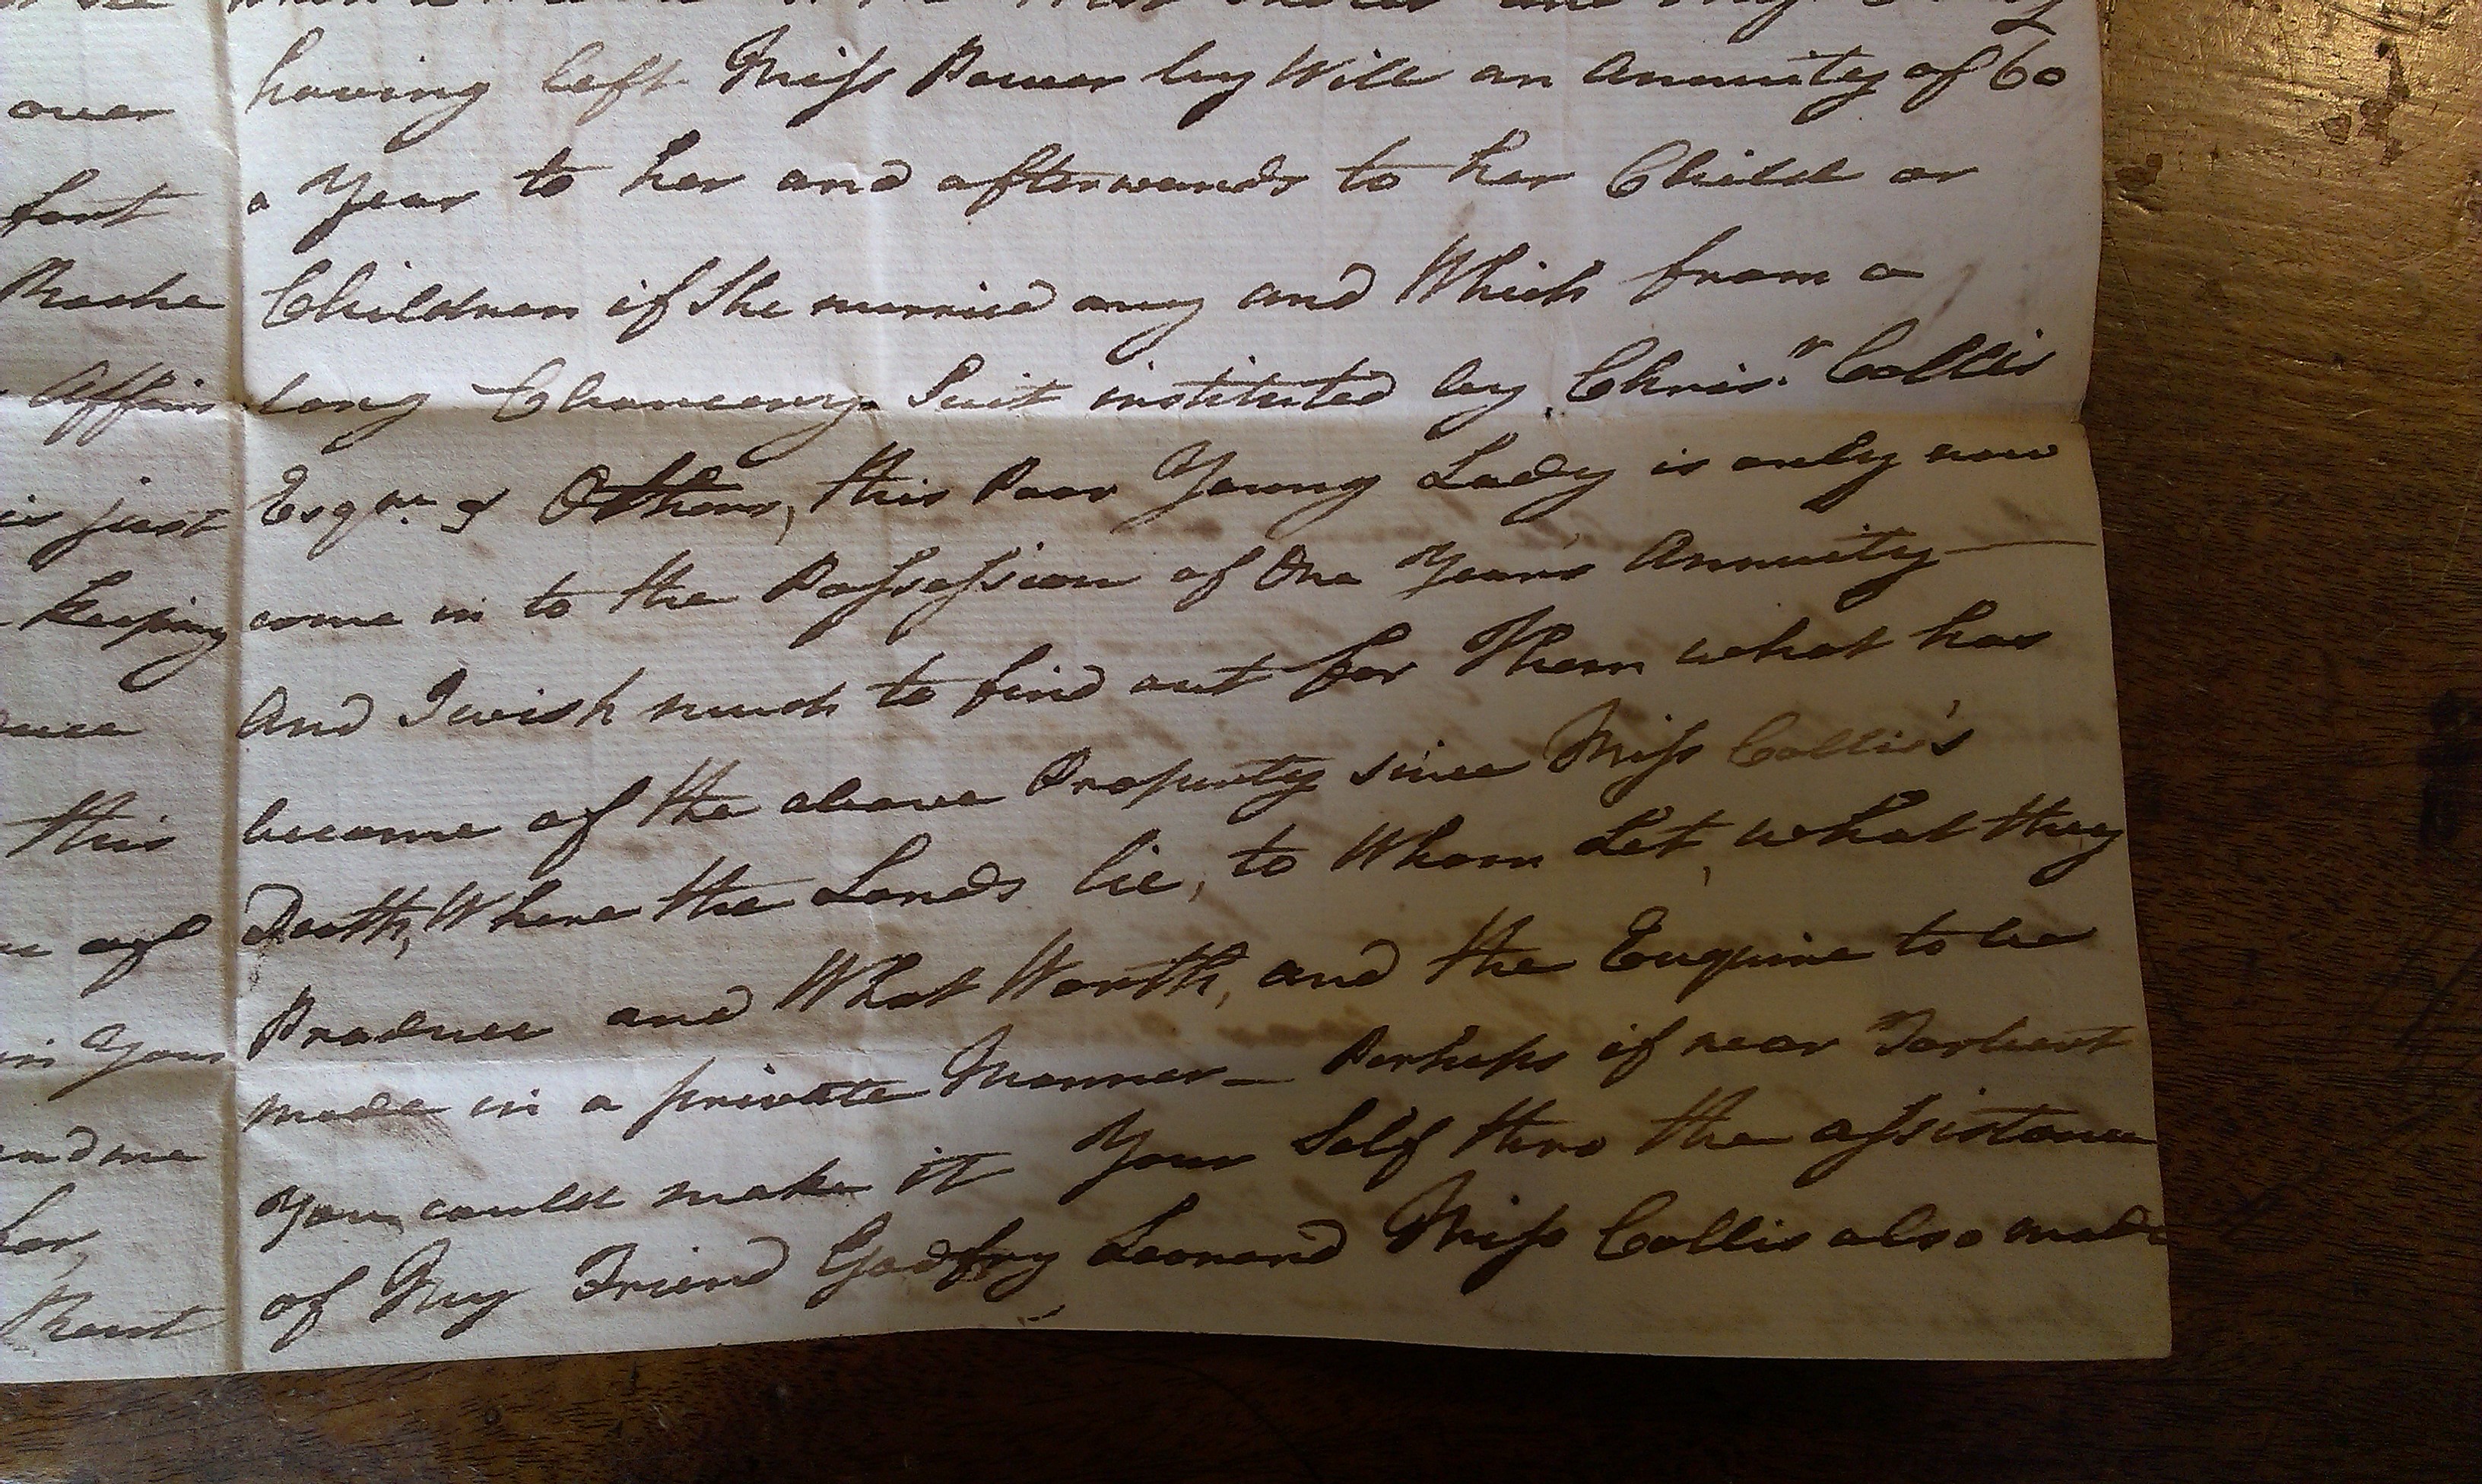 over
fort
Affair
is just
keeping
this
in Your
and me
for,
having left Miss Power by Will an Annuity of 60
a Year to her and afterwards to her Child or
Children if She married any and Which from a
long Chancery Suit instituted by Chris.r Collis
Esqre. & Others, this Poor Young Lady is only now
come in to the Possession of One Year's Annuity —
And I wish much to find out for Them what has
become of the above Property since Miss Collis's
Death, Where the Lands lie, to Whom Let, what they
Produce and What Worth, and the Enquire to be
made in a private Manner — Perhaps if near Tarbert
You could make it Your Self thro the assistance
of My Friend Godfry Leonard Miss Collis also made